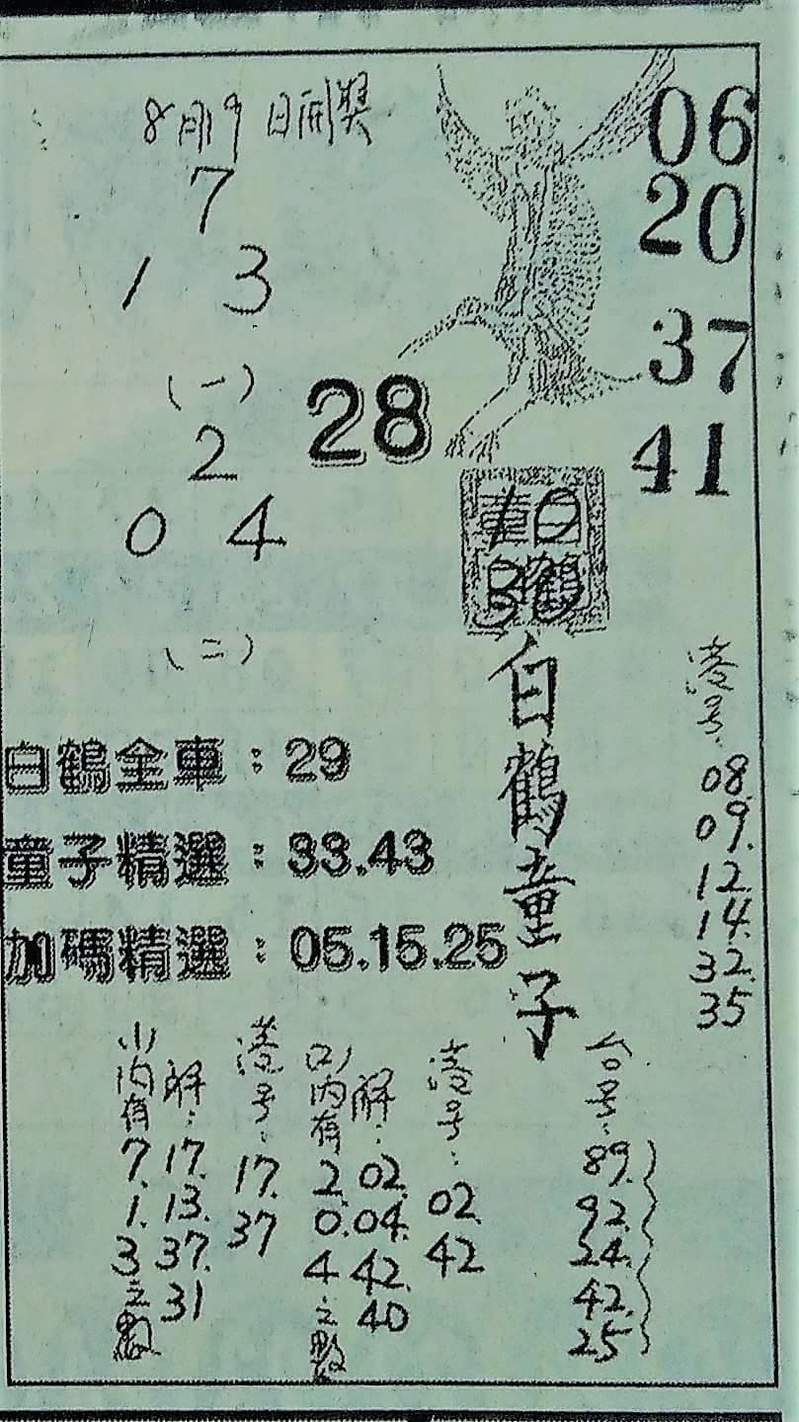 8月9日開獎
7
1 3
(一)
2
0 4
(二)
06
20
37
41
28
童白
子鶴
10
30
白鶴童子
白鶴全車：29
童子精選：33.43
加碼精選：05.15.25
港号：
08.
09.
12.
14.
32.
35
(1)內有7.1.3之數
解：17.13.37.31
港号：17.37
(2)內有2.0.4之數
解：02.04.42.40
港号：02.42
台号：89.92.24.42.25